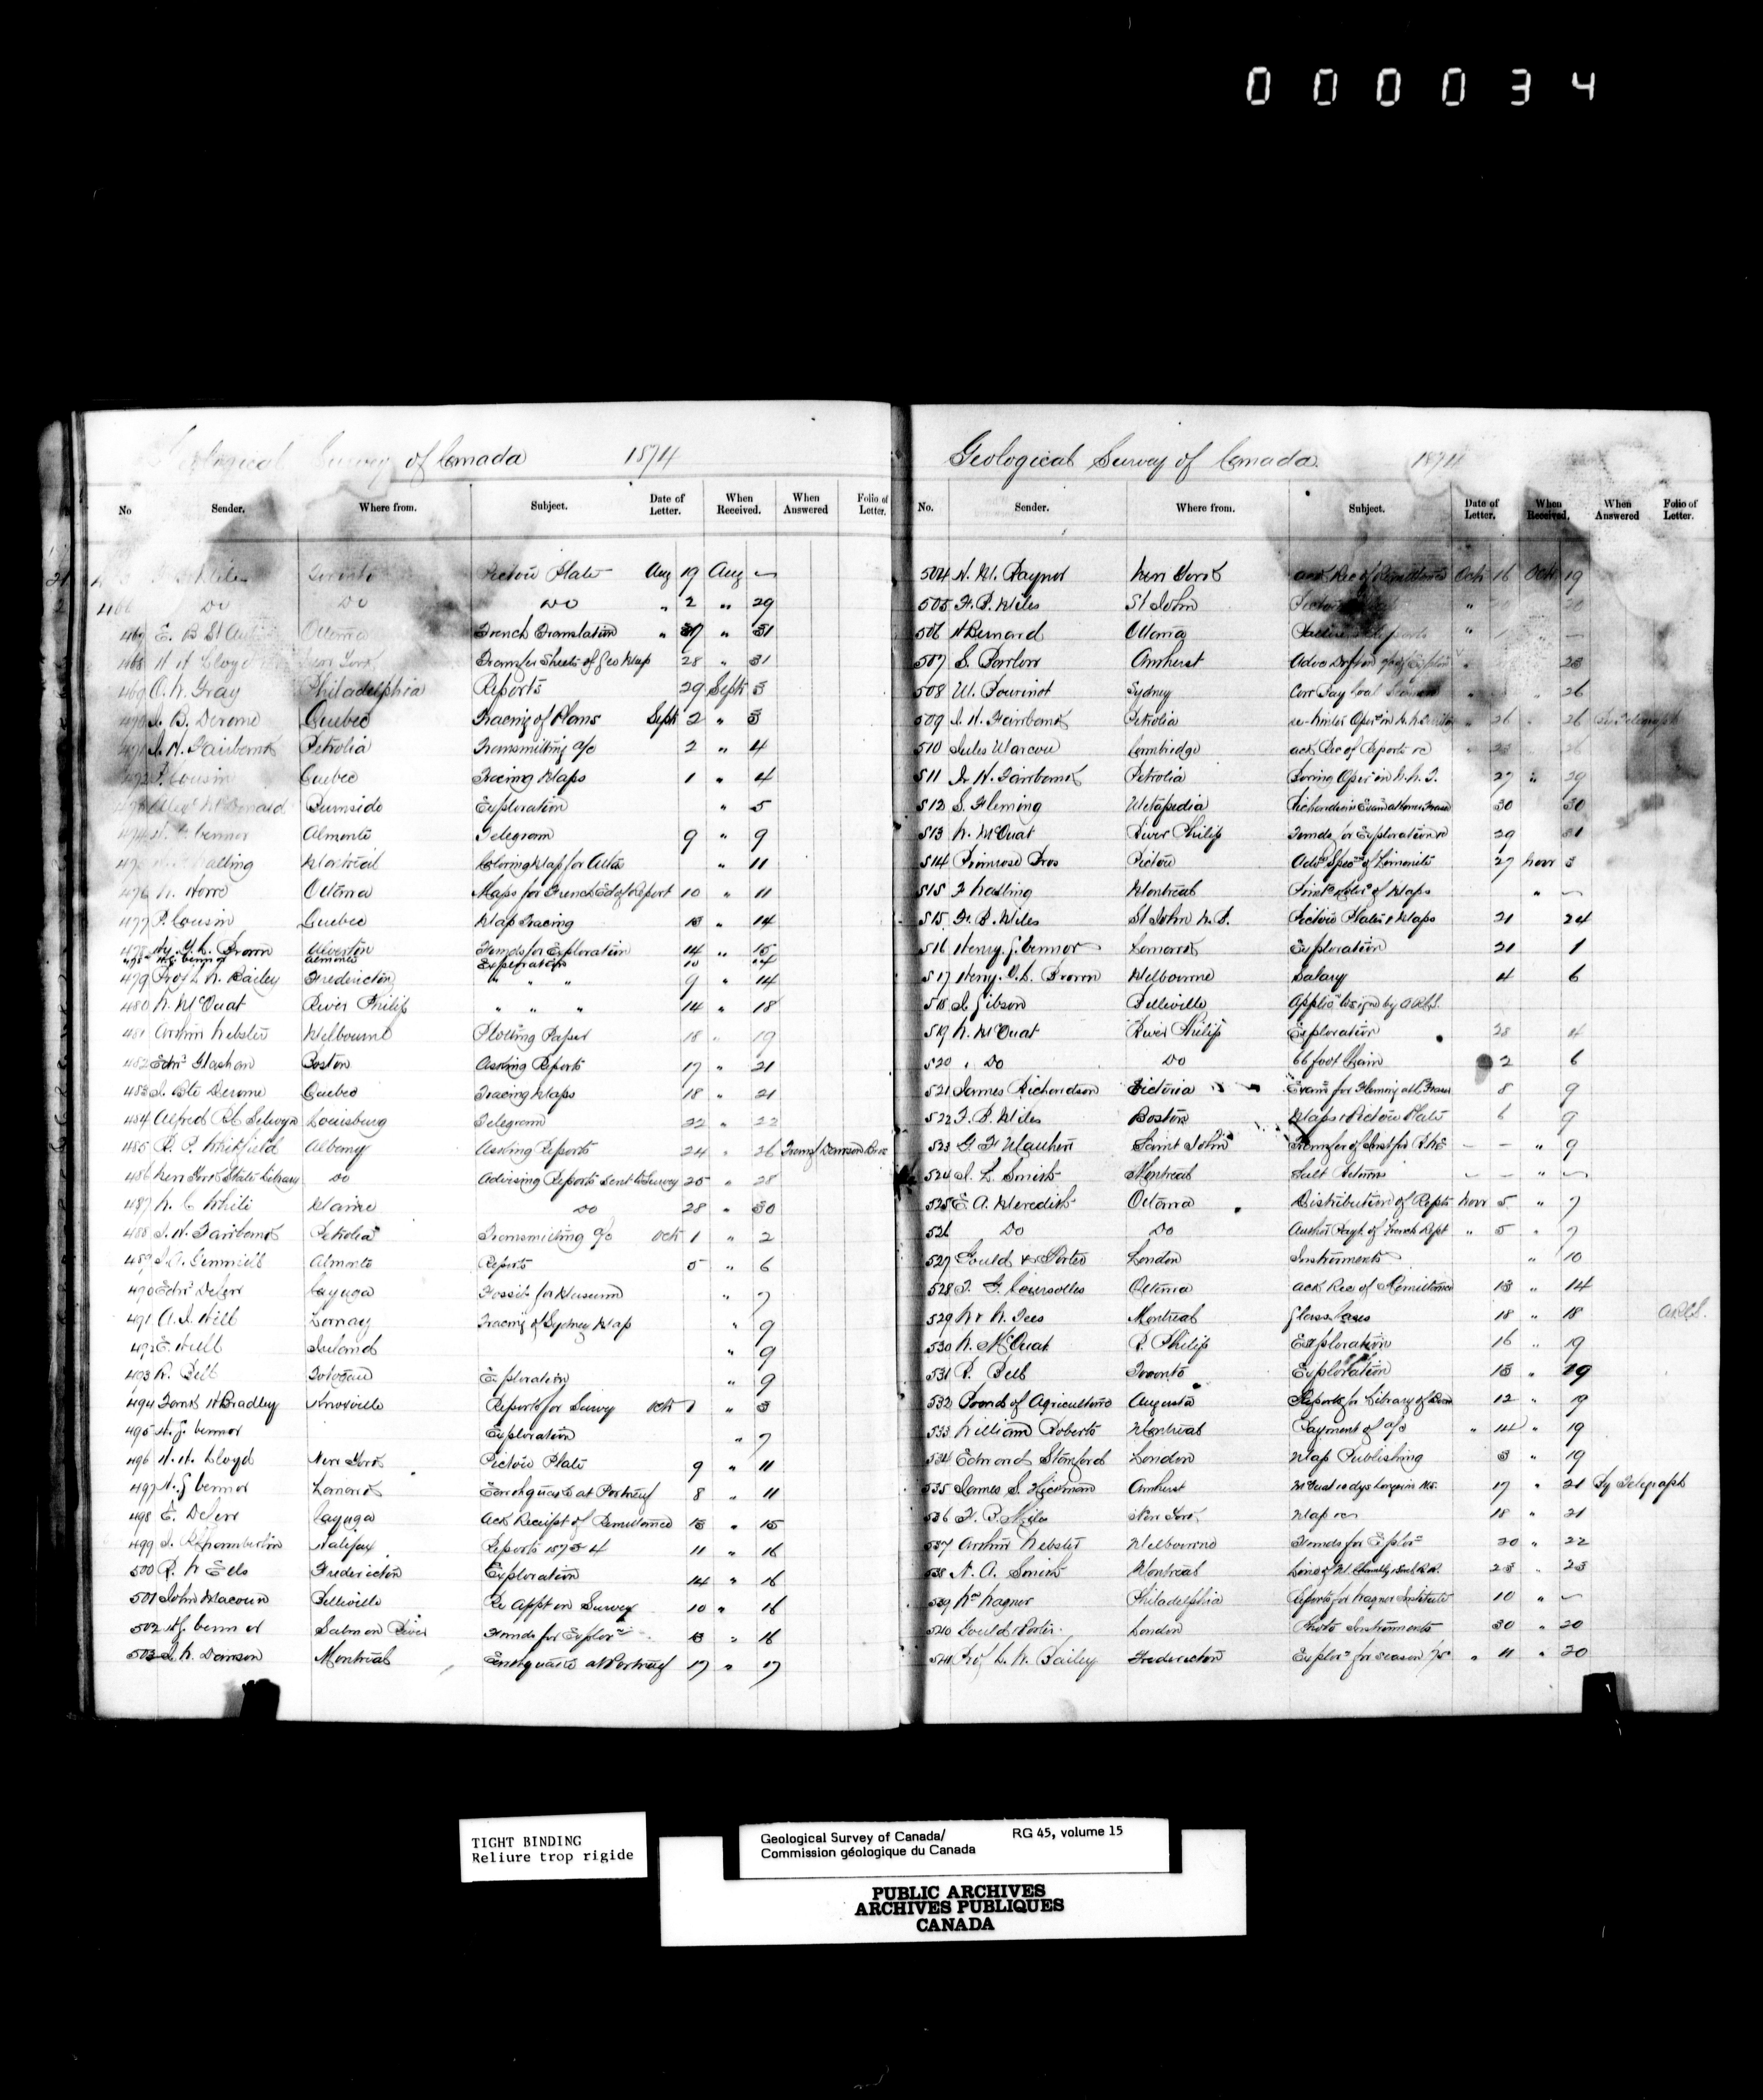 000034
Geological Survey of Canada 1874
No Sender. Where from. Subject. Date of Letter. When Received. When Answered Folio of Letter.
Toronto Pictou Plate Aug 19 Aug
466 Do Do Do " 2 " 29
467 E. B. St Ottawa French Translation " 27 " 31
468 H H Lloyd New York Transfer Sheets of Geo Map 28 " 31
469 O. W. Gray Philadelphia Reports 29 Sept 3
470 J. B. Derome Quebec Tracing of Plans Sept 2 " 3
471 J. H. Fairbank Petrolia Transmitting a/c 2 " 4
472 P. Cousin Quebec Tracing Maps 1 " 4
473 Alexr McDonald Burnside Exploration " 5
474 H. G. Vennor Almonte Telegram 9 " 9
475 Walling Montreal Coloring Map for Atlas " 11
476 W. Horre Ottawa Maps for French Ed of Report 10 " 11
477 P. Cousin Quebec Map Tracing 13 " 14
478 Hy. Y. L. Brown Ulverton Funds for Exploration 14 " 15
H.G. Vennor Almonte Exploration 10 " 14
479 Prof L. W. Bailey Fredericton " " " 9 " 14
480 W. McOuat River Philip " " " 14 " 18
481 Arthur Webster Melbourne Plotting Paper 18 " 19
482 Edwd Glashan Boston Asking Reports 17 " 21
483 J. Bte Derome Quebec Tracing Maps 18 " 21
484 Alfred R. C. Selwyn Louisburg Telegram 22 " 22
485 R. P. Whitfield Albany Asking Reports 24 " 26 Transf Dawson Bros
486 New York State Library Do Advising Reports Sent to Survey 25 " 28
487 W. C. White Maine Do 28 " 30
488 J. H. Fairbank Petrolia Transmitting a/c Oct 1 " 2
489 J. A. Gemmill Almonte Reports 5 " 6
490 Edwd DeCew Cayuga Fossils for Museum " 7
491 A. J. Hill Lornay Tracing of Sydney Map " 9
492 E. Hull Ireland " 9
493 R. Bell Exploration " 9
494 Frank H Bradley Knoxville Reports for Survey Oct 1 " 3
495 H. G. Vennor Exploration " 7
496 H. H. Lloyd New York Pictou Plate 9 " 11
497 H. G Vennor Lanark Earthquake at Portneuf 8 " 11
498 E. DeCew Cayuga Ack Receipt of Remittance 13 " 15
499 J. R. Chamberlin Halifax Reports 1873 4 11 " 16
500 R. W Ells Fredericton Exploration 14 " 16
501 John Macoun Belleville Re Appt on Survey 10 " 16
502 H.G. Vennor Salmon River Funds for Explorn 13 " 16
503 J. W. Dawson Montreal Earthquake at Portneuf 17 " 17
Geological Survey of Canada. 1874
No. Sender. Where from. Subject. Date of Letter. When Received. When Answered Folio of Letter.
504 H. W. Raynor New York Ack Rec of Remittance Oct 16 Oct 19
505 F. B. Miles St John Pictou " 20
506 H Bernard Ottawa Reports "
507 S. Barlow Amherst 23
508 M. Bourinot Sydney 26
509 J. H. Fairbank Petrolia " 26 " 26 By Telegraph
510 Jules Marcou Cambridge Ack Rec of Reports &c
511 J. H. Fairbank Petrolia Boring Oper in N. W. T. 27 " 29
512 S. Fleming Metapedia Richardson's Exam at Home Fraser 30 30
513 W. McOuat River Philip Funds for Exploration &c 29 31
514 Primrose Bros Pictou Advg Specs of Limonite 27 Novr 3
515 F Walling Montreal of Maps "
515. F. B. Miles St John N. B. Pictou Plates & Maps 21 24
516 Henry. G. Vennor Lanark Exploration 21 1
517 Henry. Y. L. Brown Melbourne Salary 4 6
518 J. Gibson Belleville Applicn Signed by ARCS.
519 W. McOuat River Philip Exploration 28 4
520 " Do Do 66 foot Chain 2 6
521 James Richardson Victoria Exam for Fleming at H. Fraser 8 9
522 F. B. Miles Boston Maps & Pictou Plate 6 9
523 G. F Matthew Saint John Transfer of Inst for R. We — — " 9
524 J. L. Smith Montreal Salt Returns — — "
525 E. A. Meredith Ottawa Distribution of Repts Novr 5 " 7
526 Do Do Author Payt of French Rept " 5 " 7
527 Gould & Porter London Instruments " 10
528 T. G. Coursolles Ottawa Ack Rec of Remittance 13 " 14
529 W & W. Tees Montreal Glass Cases 18 " 18 ARCS.
530 W. McOuat R. Philip Exploration 16 " 19
531 R. Bell Toronto Exploration 13 " 19
532 Board of Agriculture Augusta Reports for Library of Board 12 " 19
533 William Roberts Montreal Payment of a/c " 14 " 19
534 Edward Stanford London Map Publishing 3 " 19
535 James S. Hickman Amherst McOuat 10 dys longer in N.S. 17 " 21 By Telegraph
536 F. B. Miles New York Map &c 18 " 21
537 Arthur Webster Melbourne Funds for Explorn 20 " 22
538 N. A. Smith Montreal 23 " 23
539 Wm Wagner Philadelphia Reports for Wagner Institute 10 "
540 Gould & Porter. London Photo Instruments 30 " 20
541 Prof L. W. Bailey Fredericton Explorn for season /75 " 11 " 20
TIGHT BINDING
Reliure trop rigide
Geological Survey of Canada/ RG 45, volume 15
Commission géologique du Canada
PUBLIC ARCHIVES
ARCHIVES PUBLIQUES
CANADA